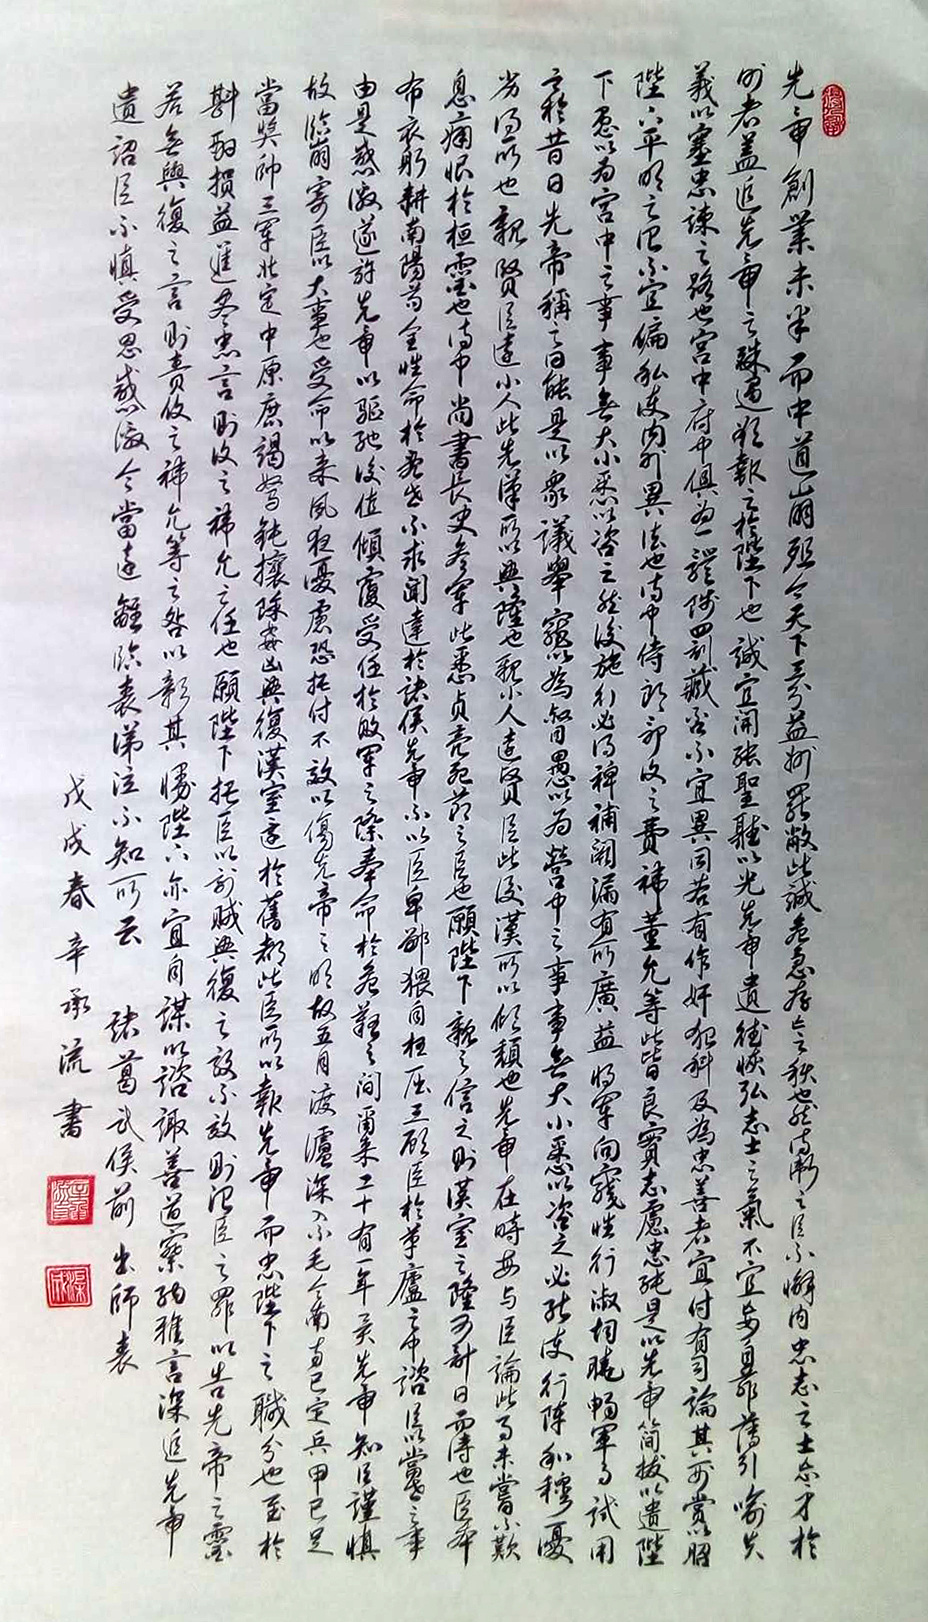 先帝創業未半而中道崩殂今天下三分益州罷敝此誠危急存亡之秋也然侍衛之臣不懈內忠志之士忘身於
外者蓋追先帝之殊遇欲報之於陛下也誠宜開張聖聽以光先帝遺德恢弘志士之氣不宜妄自菲薄引喻失
義以塞忠諫之路也宮中府中俱為一體陟罰臧否不宜異同若有作奸犯科及為忠善者宜付有司論其刑賞以昭
陛下平明之治不宜偏私使內外異法也侍中侍郎郭攸之費禕董允等此皆良實志慮忠純是以先帝簡拔以遺陛
下愚以為宮中之事事無大小悉以咨之然後施行必得裨補闕漏有所廣益將軍向寵性行淑均曉暢軍事試用
之於昔日先帝稱之曰能是以眾議舉寵以為督愚以為營中之事事無大小悉以咨之必能使行陣和穆優
劣得所也親賢臣遠小人此先漢所以興隆也親小人遠賢臣此後漢所以傾頹也先帝在時每与臣論此事未嘗不歎
息痛恨於桓靈也侍中尚書長史參軍此悉貞亮死節之臣也願陛下親之信之則漢室之隆可計日而待也臣本
布衣躬耕南陽苟全性命於亂世不求聞達於諸侯先帝不以臣卑鄙猥自枉屈三顧臣於草廬之中諮臣以當世之事
由是感激遂許先帝以驅馳後值傾覆受任於敗軍之際奉命於危難之間爾來二十有一年矣先帝知臣謹慎
故臨崩寄臣以大事也受命以來夙夜憂慮恐托付不效以傷先帝之明故五月渡瀘深入不毛今南方已定兵甲已足
當獎帥三軍北定中原庶竭駑鈍攘除姦凶興復漢室還於舊都此臣所以報先帝而忠陛下之職分也至於
斟酌損益進盡忠言則攸之禕允之任也願陛下托臣以討賊興復之效不效則治臣之罪以告先帝之靈
若無興復之言則責攸之禕允等之咎以彰其慢陛下亦宜自謀以諮諏善道察納雅言深追先帝
遺詔臣不慎受恩感激今當遠離臨表涕泣不知所云 諸葛武侯前出師表
戊戌春辛承流書